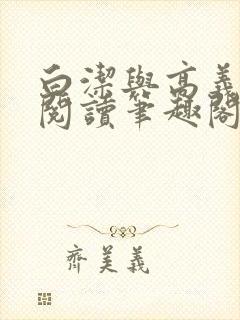 白潔與高義
閱讀筆趣閣
齊美義